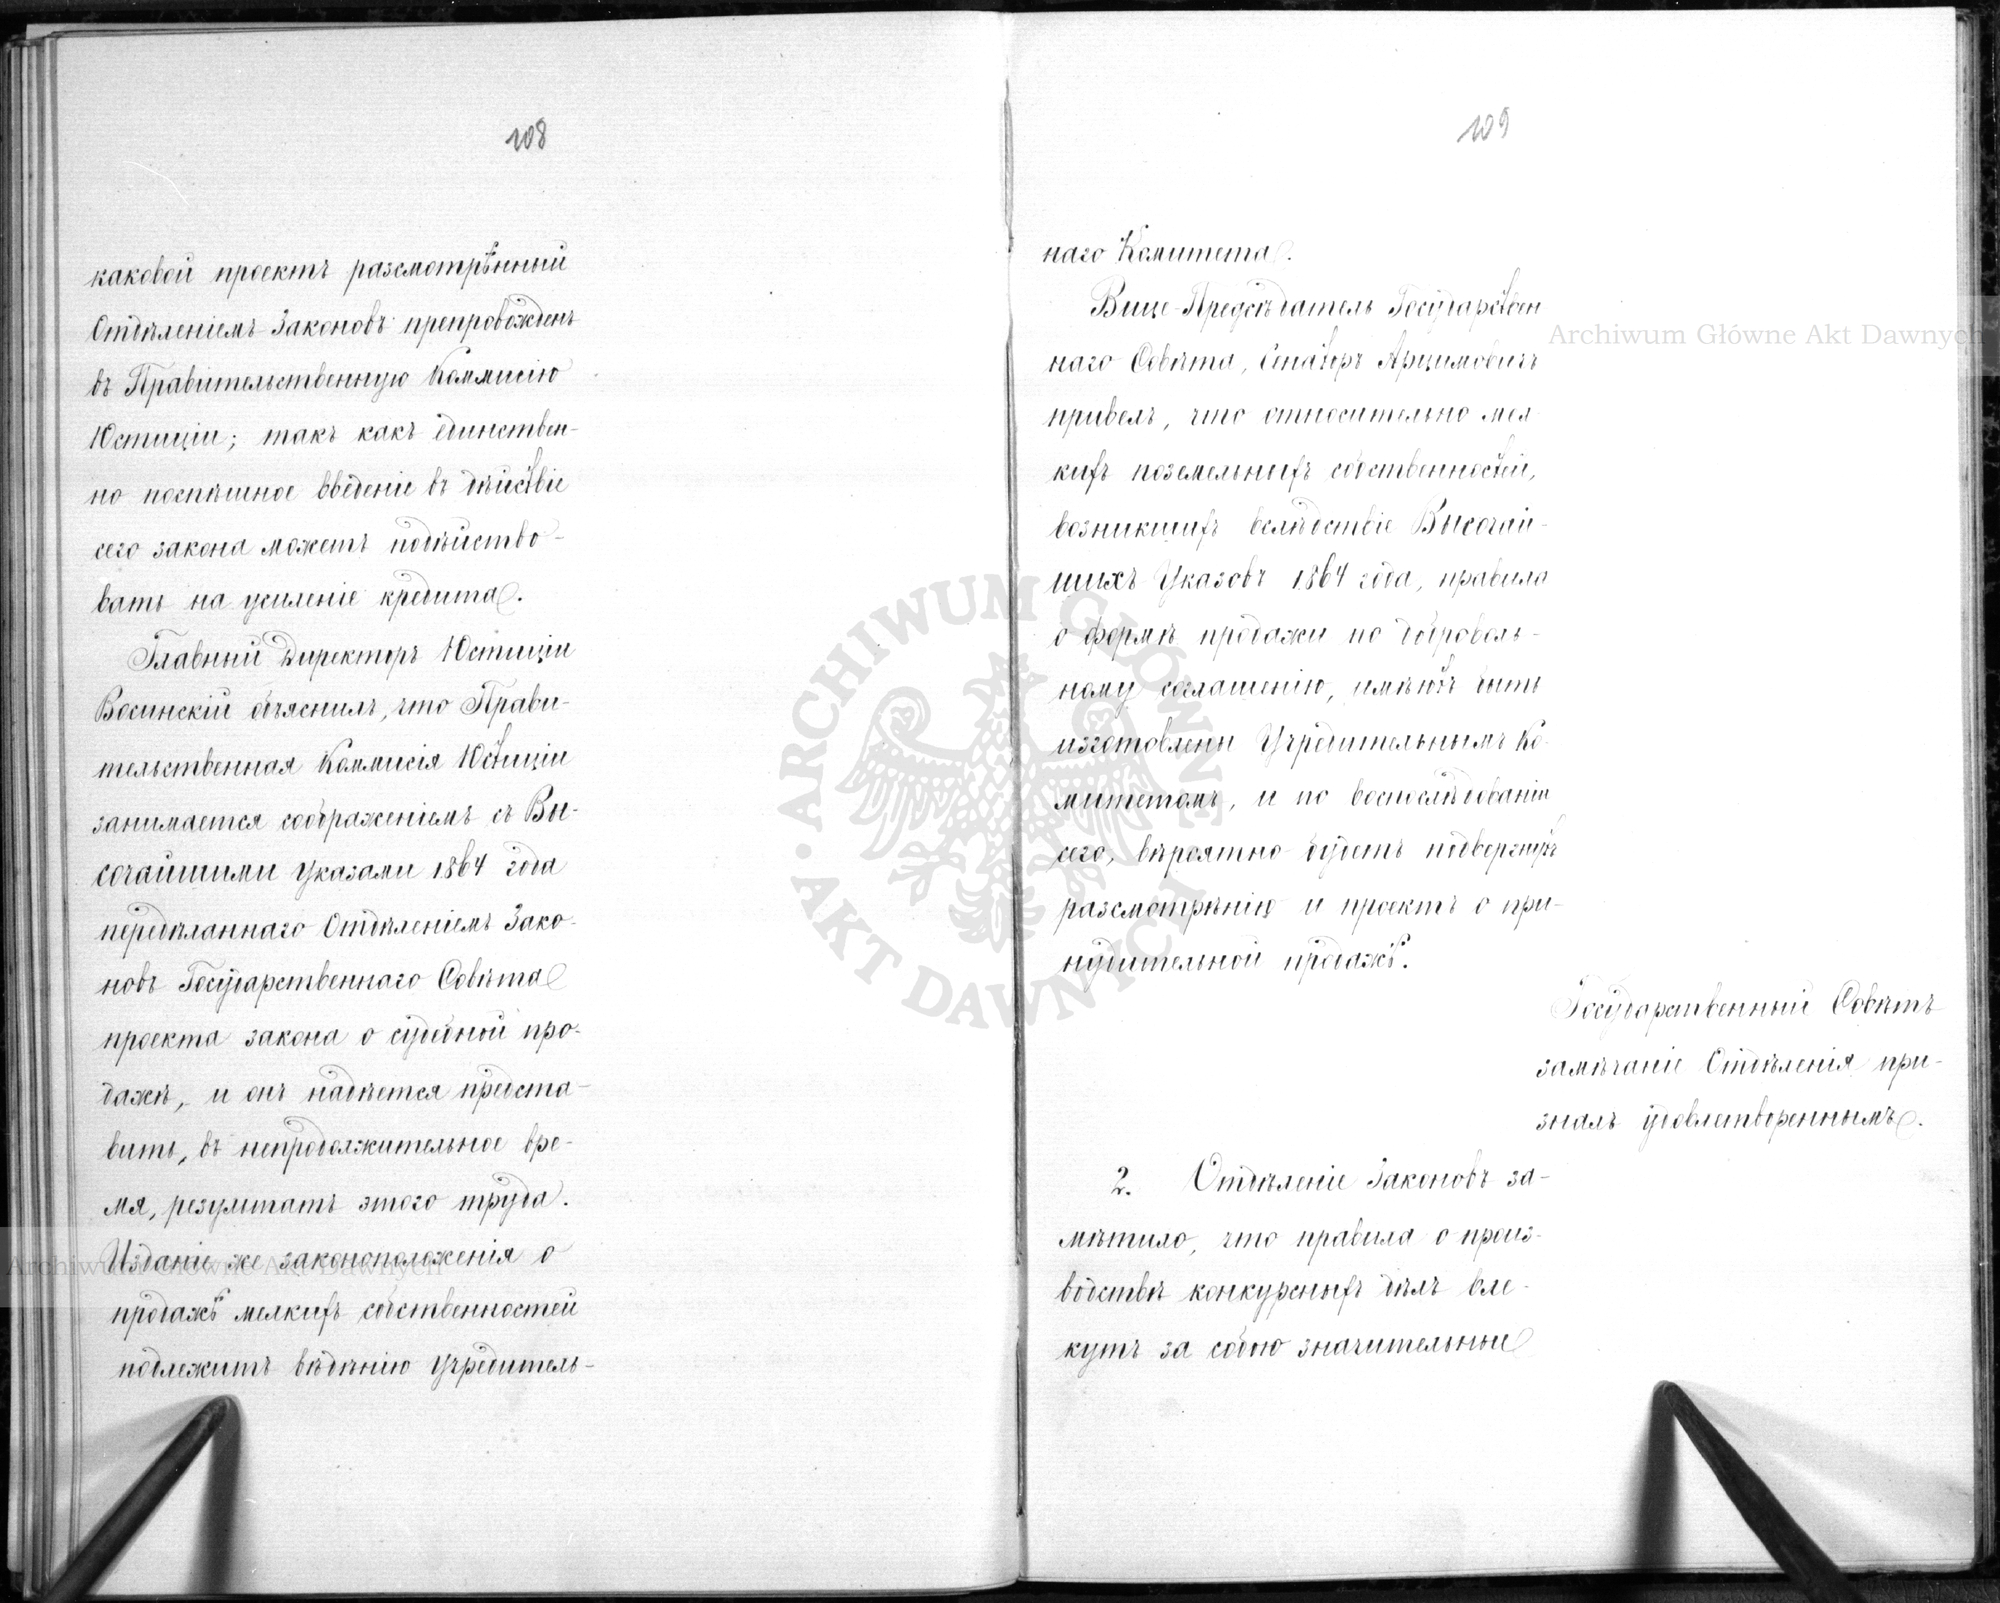 108
каковой проектъ разсмотрѣнный
Отдѣленіемъ Законовъ препровожденъ
въ Правительственную Коммисію
Юстиціи; такъ какъ единствен-
но поспѣшное введеніе въ дѣйствіе
сего закона можетъ подѣйство-
вать на усиленіе кредита.
Главный Директоръ Юстиціи
Восинскій объяснилъ, что Прави-
тельственная Коммисія Юстиціи
занимается соображеніемъ съ Вы-
сочайшими Указами 1864 года
передѣланнаго Отдѣленіемъ Зако-
новъ Государственнаго Совѣта
проекта закона о судебной про-
дажѣ, и онъ надѣется предста-
вить, въ непродолжительное вре-
мя, результатъ этого труда.
Изданіе же законоположенія о
продажѣ мелкихъ собственностей
подлежитъ вѣдѣнію Учредитель-
109
наго Комитета.
Вице-Предсѣдатель Государствен
наго Совѣта, Сенаторъ Арцимовичъ
привелъ, что относительно мел
кихъ поземельныхъ собственностей,
возникшихъ вслѣдствіе Высочай-
шихъ Указовъ 1864 года, правила
о формѣ продажи по доброволь-
ному соглашенію, имѣютъ быть
изготовлены Учредительнымъ Ко-
митетомъ, и по воспослѣдованіи
сего, вѣроятно будетъ подвергнутъ
разсмотрѣнію и проектъ о при-
нудительной продажѣ.
Государственный Совѣтъ
замѣчаніе Отдѣленія при-
зналъ удовлетвореннымъ.
2. Отдѣленіе Законовъ за-
мѣтило, что правила о произ-
водствѣ конкурсныхъ дѣлъ вле-
кутъ за собою значительные
Archiwum Główne Akt Dawnych
Archiwum Główne Akt Dawnych
ARCHIWUM GŁÓWNE · AKT DAWNYCH